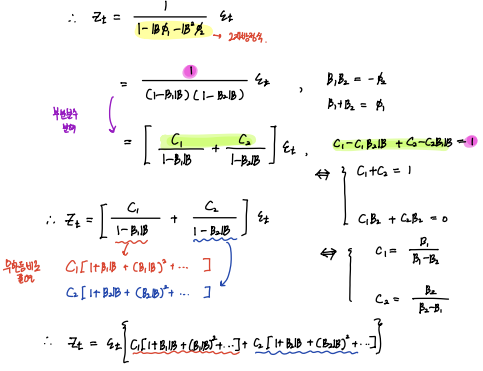 ∴ Zₜ = 1 / (1 - 𝔹ϕ₁ - 𝔹²ϕ₂) εₜ
→ 2차방정식.
= 1 / ((1-B₁𝔹)(1-B₂𝔹)) εₜ , B₁B₂ = -ϕ₂
B₁+B₂ = ϕ₁
부분분수
분해
= [ C₁ / (1-B₁𝔹) + C₂ / (1-B₂𝔹) ] εₜ , C₁-C₁B₂𝔹 + C₂-C₂B₁𝔹 = 1
⇔ { C₁+C₂ = 1
C₁B₂ + C₂B₂ = 0
∴ Zₜ = [ C₁ / (1-B₁𝔹) + C₂ / (1-B₂𝔹) ] εₜ
⇔ { C₁ = B₁ / (B₁-B₂)
C₂ = B₂ / (B₂-B₁)
무한등비급
C₁[1+B₁𝔹 + (B₁𝔹)² + ⋯ ]
C₂[1+B₂𝔹 + (B₂𝔹)² + ⋯ ]
∴ Zₜ = εₜ { C₁[1+B₁𝔹+(B₁𝔹)²+⋯] + C₂[1+B₂𝔹+(B₂𝔹)²+⋯] }